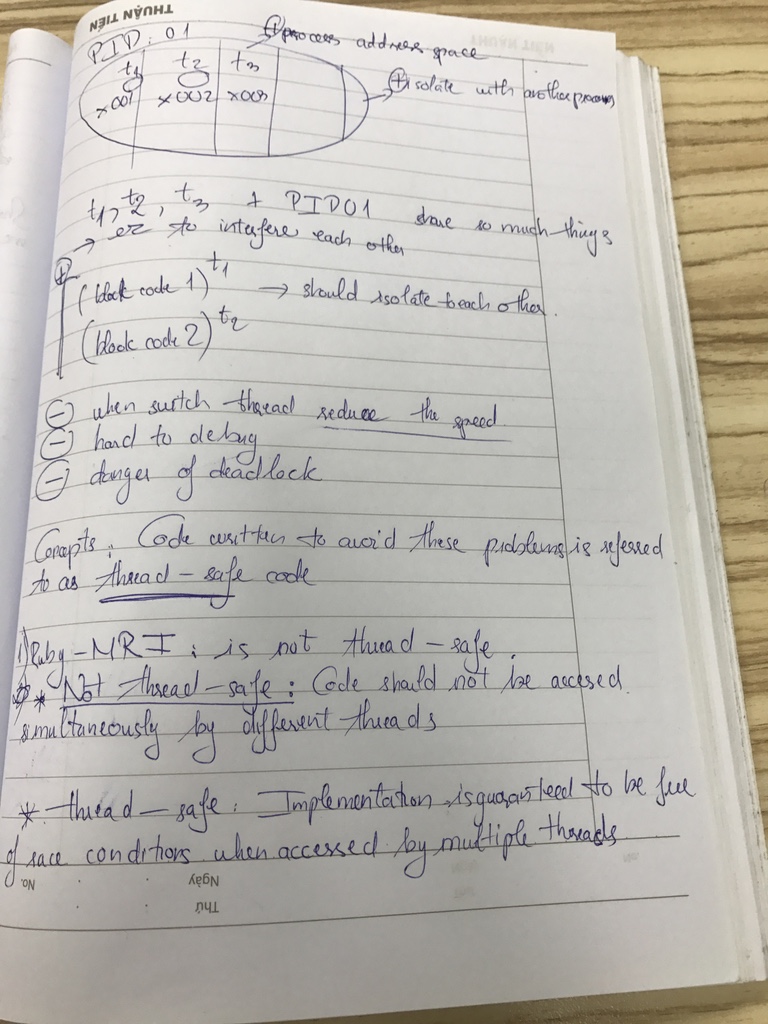 THUẬN TIẾN
PID: 01
⊕ process address space
t1 t2 t3
x001 x002 x003
⊕ isolate with another process
t1, t2, t3 + PID01 share so much things
→ ez to interfere each other
⊕
(block code 1) t1 → should isolate to each other.
(block code 2) t2
⊖ when switch thread reduce the speed
⊖ hard to debug
⊖ danger of deadlock
Concepts: Code written to avoid these problems is referred
to as thread-safe code
1) Ruby-MRI: is not thread-safe.
* Not thread-safe: Code should not be accesed
simultaneously by different threads
* thread-safe: Implementation is guaranteed to be free
of race conditions when accessed by multiple threads
No.
Ngày
Thứ